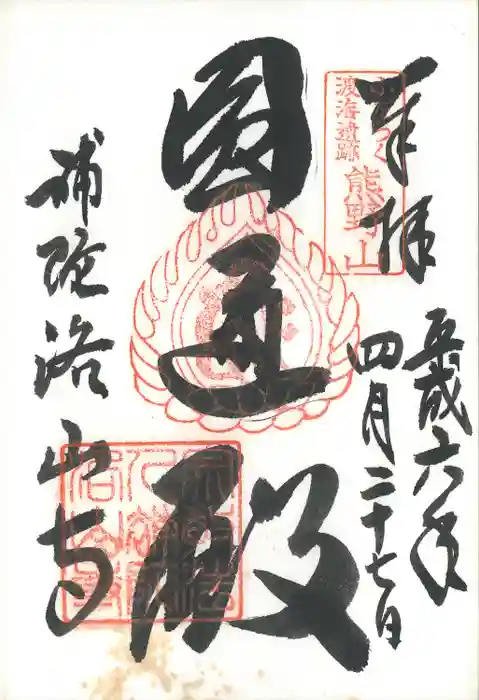 奉拝
平成六年
四月二十七日
渡海遺跡
熊野山
圓通殿
補陀洛山寺